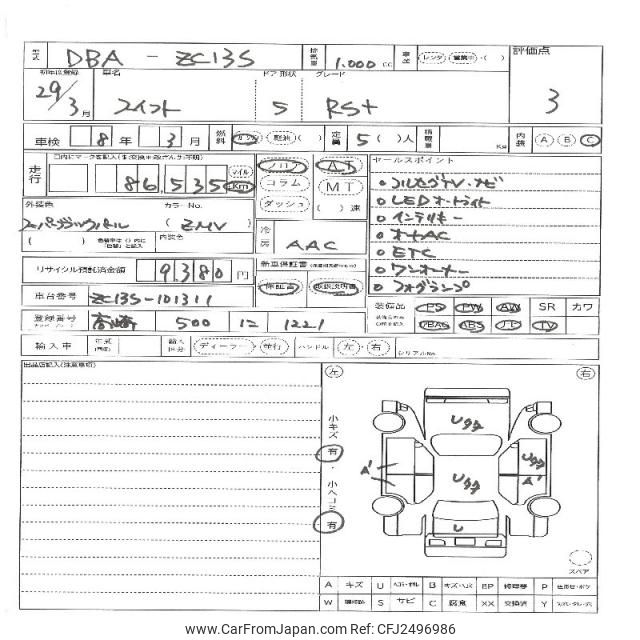 型式 DBA - ZC13S 排気量 1.000 CC 車歴 レンタ・営業中・( ) 評価点
初年度登録 車名 ドア形状 グレード
29/3月 スイフト 5 RSt 3
車検 8年 3月 燃料 ガソリン・軽油( ) 定員 5( )人 積載量 Kg 内装 A B C
走行 86,535 マイル Km フロア AT セールスポイント
コラム MT フルセグTV・ナビ
外装色 カラーNo. ダッシュ ( )速 LEDオートライト
スーパーブラックパール (ZMV) インテリキー
( ) 内装色 冷房 AAC オートAC
ETC
リサイクル預託済金額 9,380円 新車保証書 ワンオーナー
保証書 取扱説明書 フォグランプ
車台番号 ZC13S-101311 装備品 PS PW AW SR カワ
登録番号 高崎 500 に 1221 ABAG ABS TV
輸入車 年式 輸入区分 ディーラー・並行 ハンドル 左・右 シリアルNo.
出品店記入(注意事項) 左 右
小キズ 有・小ヘコミ 有
Uクク
Uクク
A' A'
Uクク
U
スペア
A キズ U ヘコミ・ボル B キズ・ヘコミ BP 修理等 P
W S サビ C 腐食 XX 交換済 Y
www.CarFromJapan.com ID:CFJ2496986